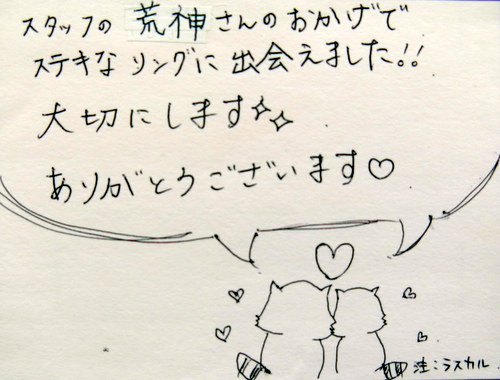 スタッフの 荒神さんのおかげで
ステキなリングに出会えました!!
大切にします
ありがとうございます♡
注:ラスカル